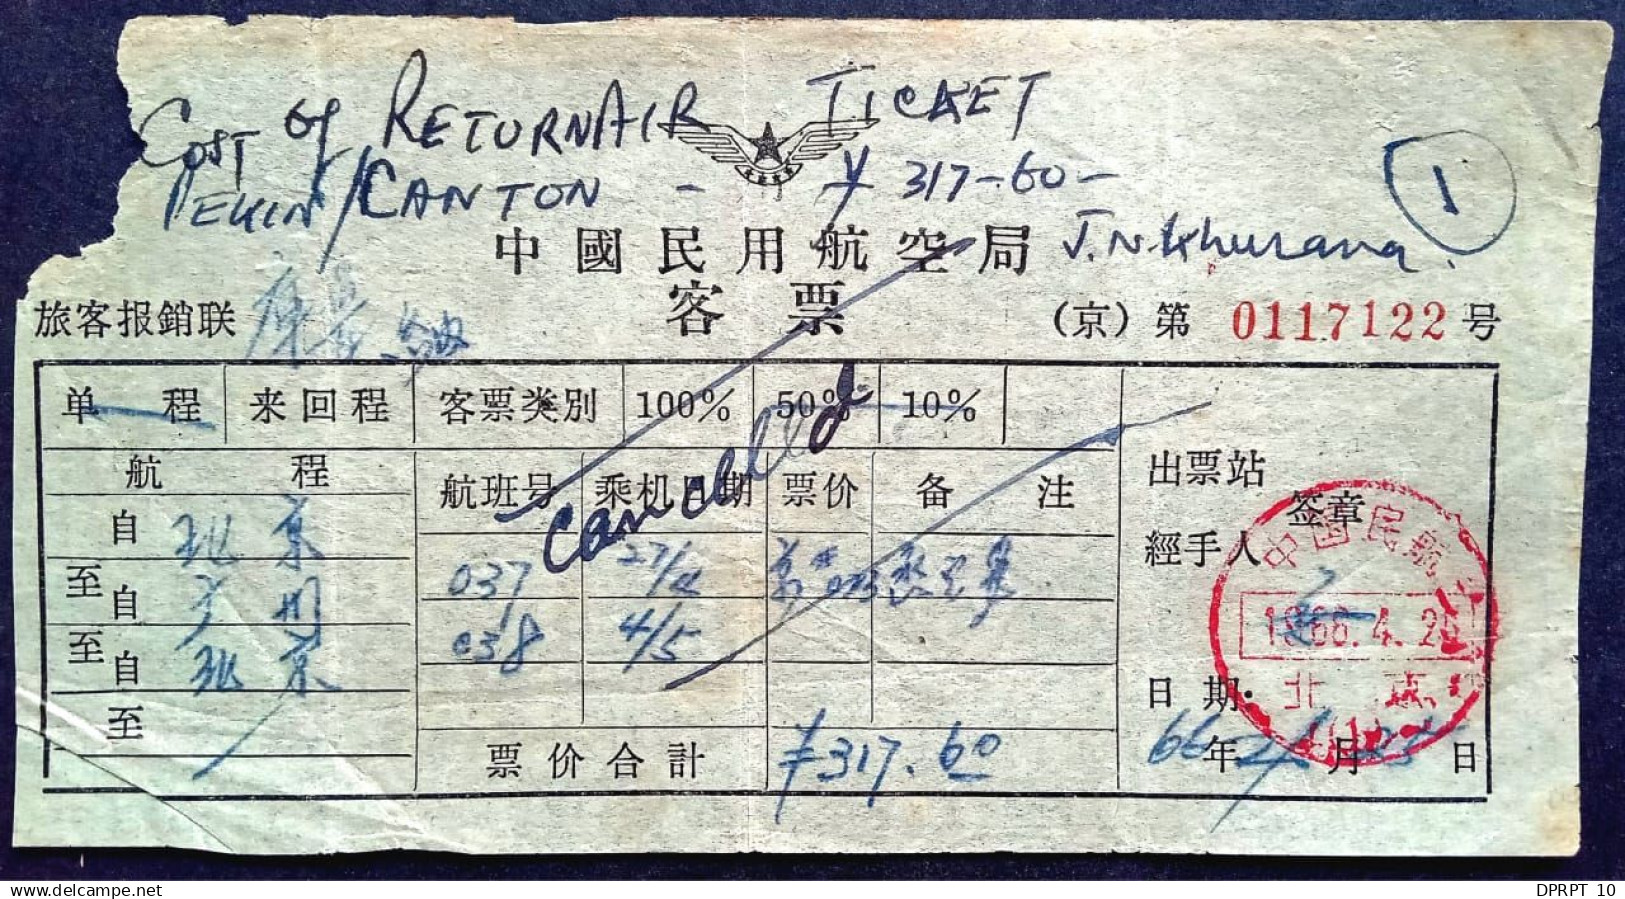 Cost of RETURN AIR TICKET
PEKIN/CANTON - ¥ 317-60-
1
中國民用航空局
J.N. Khurana.
旅客报銷联
客票
(京)第 0117122 号
单程 来回程 客票类別 100% 50% 10%
航程 航班号 乘机日期 票价 备注
Cancelled
出票站
签章
經手人
自 北京
至
037 27/4
自 广州
至
038 4/5
自 北京
至
中国民航
1966.4.2
北京
(1)
日期 66年4月25日
票价合計 ¥317.60
DPRPT 10